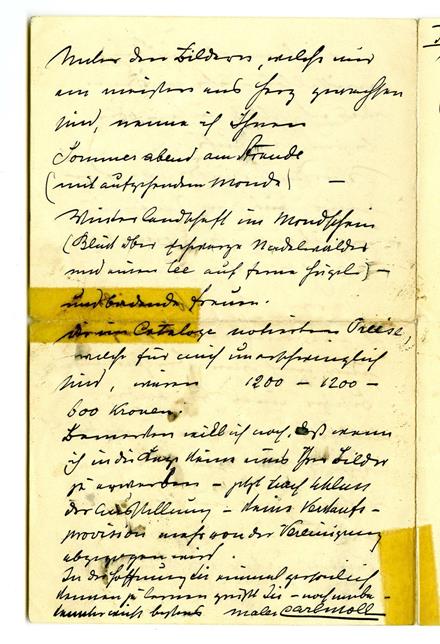 Unter den Bildern, welche mir
am meisten ans Herz gewachsen
sind, nenne ich Ihnen
Sommerabend am Strande
(mit aufgehendem Monde) —
Winterlandschaft im Mondschein
(Blick über schwarze Nadelwälder
und einen See auf ferne Hügel) —
und badende Frauen.
Die im Cataloge notierten Preise,
welche für mich unerschwinglich
sind, waren 1200 – 1200 –
600 Kronen.
Bemerken will ich noch, daß wenn
ich in die Lage käme eines Ihrer Bilder
zu erwerben – jetzt nach Schluss
der Ausstellung – keine Verkaufs-
provision mehr von der Vereinigung
abgezogen wird.
In der Hoffnung Sie einmal persönlich
kennen zu lernen grüßt Sie – noch unbe-
kannterweise bestens Maler Carl Moll